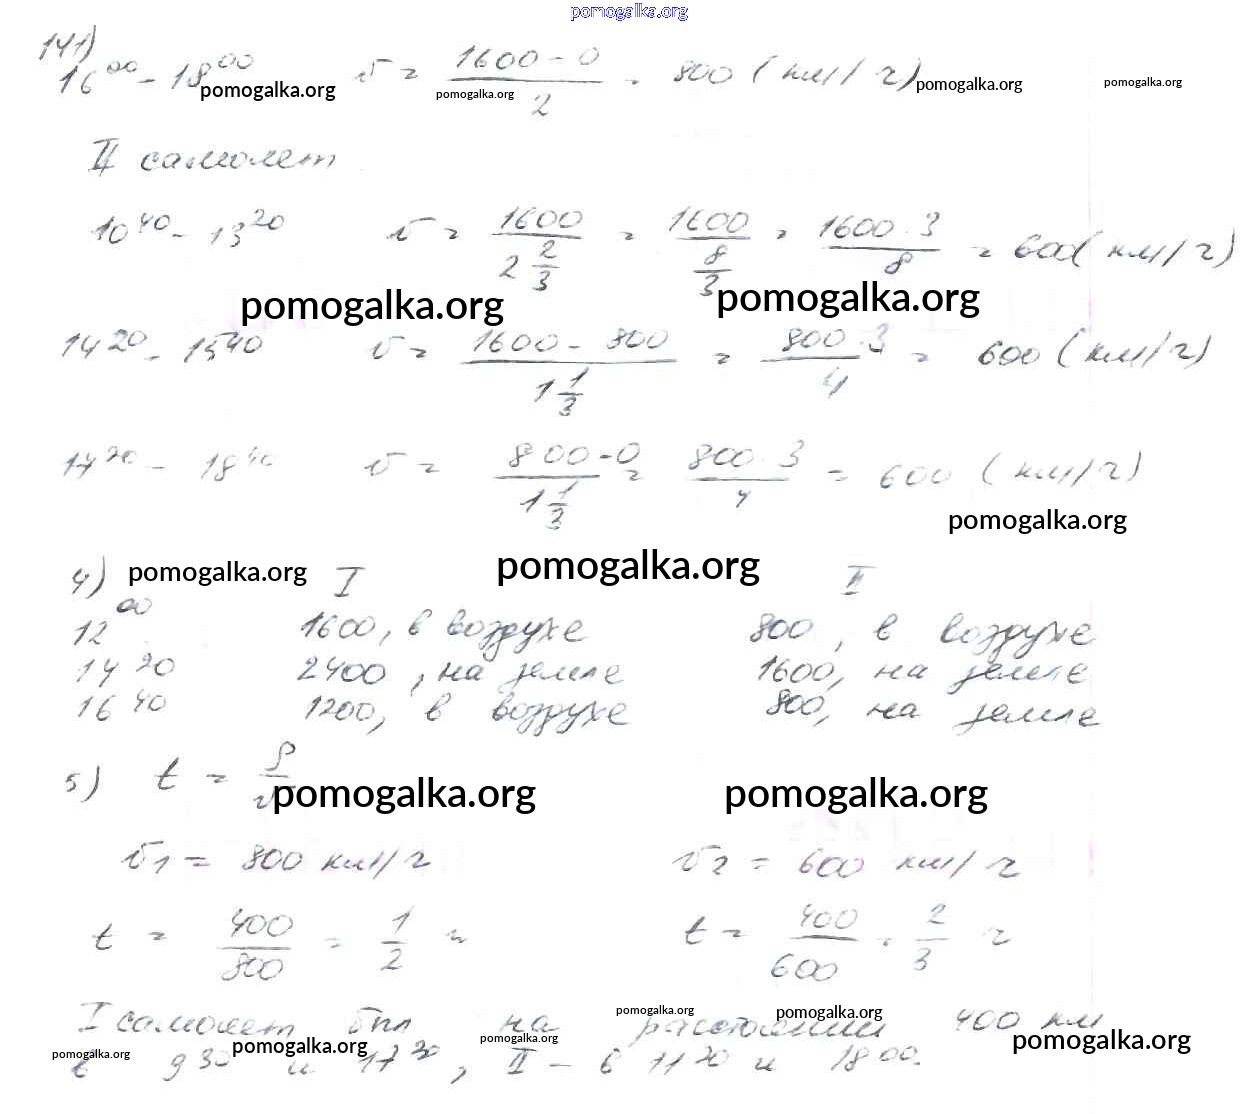 pomogalka.org
141)
16⁰⁰ - 18⁰⁰ pomogalka.org v = (1600 - 0)/2 = 800 (км/ч) pomogalka.org pomogalka.org pomogalka.org
II самолет
10⁴⁰ - 13²⁰ v = 1600/(2 2/3) = 1600/(8/3) = (1600 · 3)/8 = 600 (км/ч)
pomogalka.org pomogalka.org
14²⁰ - 15⁴⁰ v = (1600 - 800)/(1 1/3) = (800 · 3)/4 = 600 (км/ч)
17²⁰ - 18⁴⁰ v = (800 - 0)/(1 1/3) = (800 · 3)/4 = 600 (км/ч)
pomogalka.org
4) pomogalka.org I pomogalka.org II
12⁰⁰ 1600, в воздухе 800, в воздухе
14²⁰ 2400, на земле 1600, на земле
16⁴⁰ 1200, в воздухе 800, на земле
5) t = S/v pomogalka.org pomogalka.org
v₁ = 800 км/ч v₂ = 600 км/ч
t = 400/800 = 1/2 ч t = 400/600 = 2/3 ч
pomogalka.org pomogalka.org
I самолет был на расстоянии 400 км
pomogalka.org pomogalka.org pomogalka.org pomogalka.org
в 9³⁰ и 17³⁰, II - в 11²⁰ и 18⁰⁰.